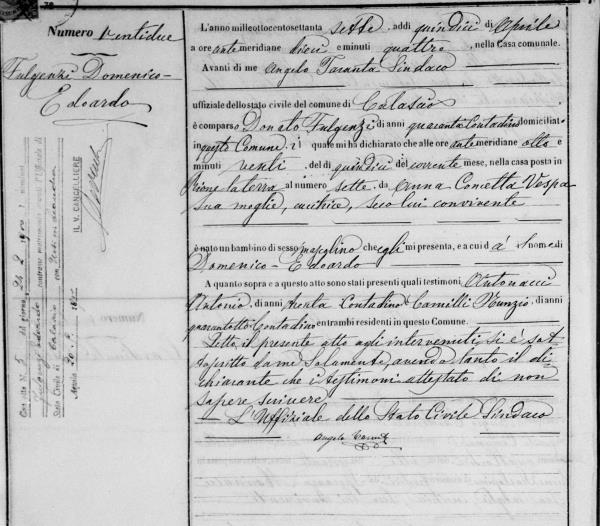 Numero Ventidue
Fulgenzi Domenico-
Edoardo
IL V. CANCELLIERE
L'anno milleottocentosettanta sette, addì quindici di Aprile
a ore ante meridiane dieci e minuti quattro, nella Casa comunale.
Avanti di me Angelo Taranta Sindaco
uffiziale dello stato civile del comune di Calascio
è comparso Donato Fulgenzi di anni quaranta Contadino domiciliato
in questo Comune, il quale mi ha dichiarato che alle ore ante meridiane otto e
minuti venti, del dì quindici del corrente mese, nella casa posta in
Rione la terra al numero sette, da Anna Cometta Vespa
sua moglie, cucitrice, seco lui convivente
è nato un bambino di sesso mascolino che egli mi presenta, e a cui dà i nomi di
Domenico-Edoardo
A quanto sopra e a questo atto sono stati presenti quali testimoni Antonacci
Antonio, di anni trenta Contadino e Camilli Nunzio, di anni
quarantotto Contadino entrambi residenti in questo Comune.
Letto il presente atto agli intervenuti, si è sot
toscritto da me solamente, avendo tanto il di
chiarante che i testimoni attestato di non
sapere scrivere
L'Uffiziale dello Stato Civile Sindaco
Angelo